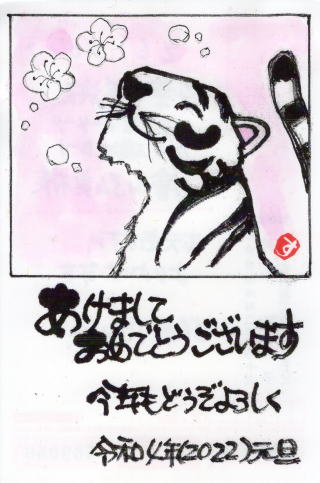 あけまして
おめでとうございます
今年もどうぞよろしく
令和4年(2022)元旦